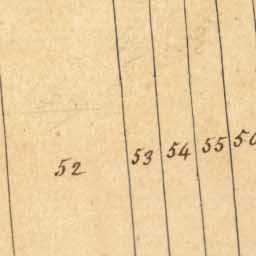 52 53 54 55